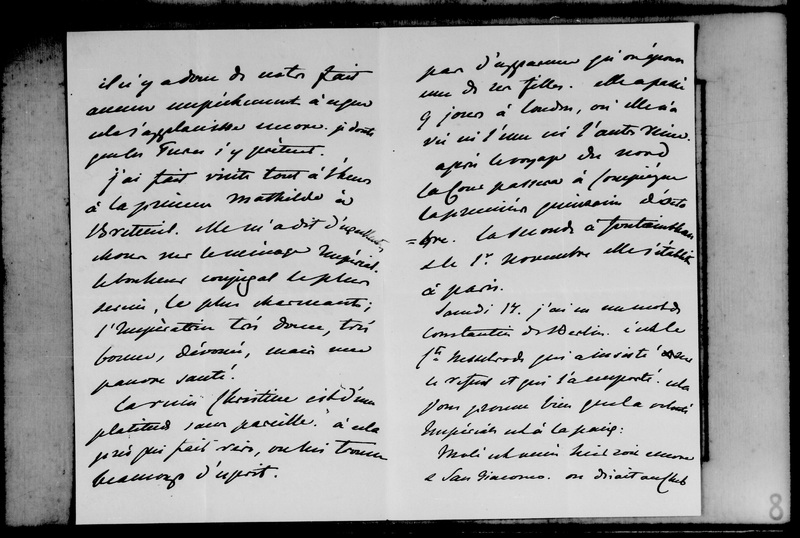 il n'y a donc de notre fait
aucun empêchement à ce que
cela s'applanisse encore. je doute
que les Turcs s'y prêtent.
j'ai fait visite tout à l'heure
à la princesse Mathilde à
Breteuil. Elle m'a dit d'excellentes
choses sur le ménage Impérial.
le bonheur conjugal le plus
serein, le plus charmant;
l'Impératrice très douce, très
bonne, dévouée, mais une
pauvre santé.
La reine Christine est d'une
platitude sans pareille. à cela
près qui fait rire, on lui trouve
beaucoup d'esprit.
pas d'apparence qu'on épouse
une de ses filles. elle a passé
9 jours à Londres, où elle n'a
vu ni l'une ni l'autre Reine.
après le voyage du nord
la Cour passera à Compiègne
la première quinzaine d'octo
=bre. la seconde à fontainebleau
& le 1er novembre elle s'établit
à Paris.
Samedi 17. j'ai eu un mot de
Constantin de Berlin. c'est le
Cte Nesselrode qui a insisté
le refus et qui l'a emporté. cela
vous prouve bien que la volonté
Impériale est à la paix.
Molé est venu hier soir encore
& San Giacomo. on disait au Club
8